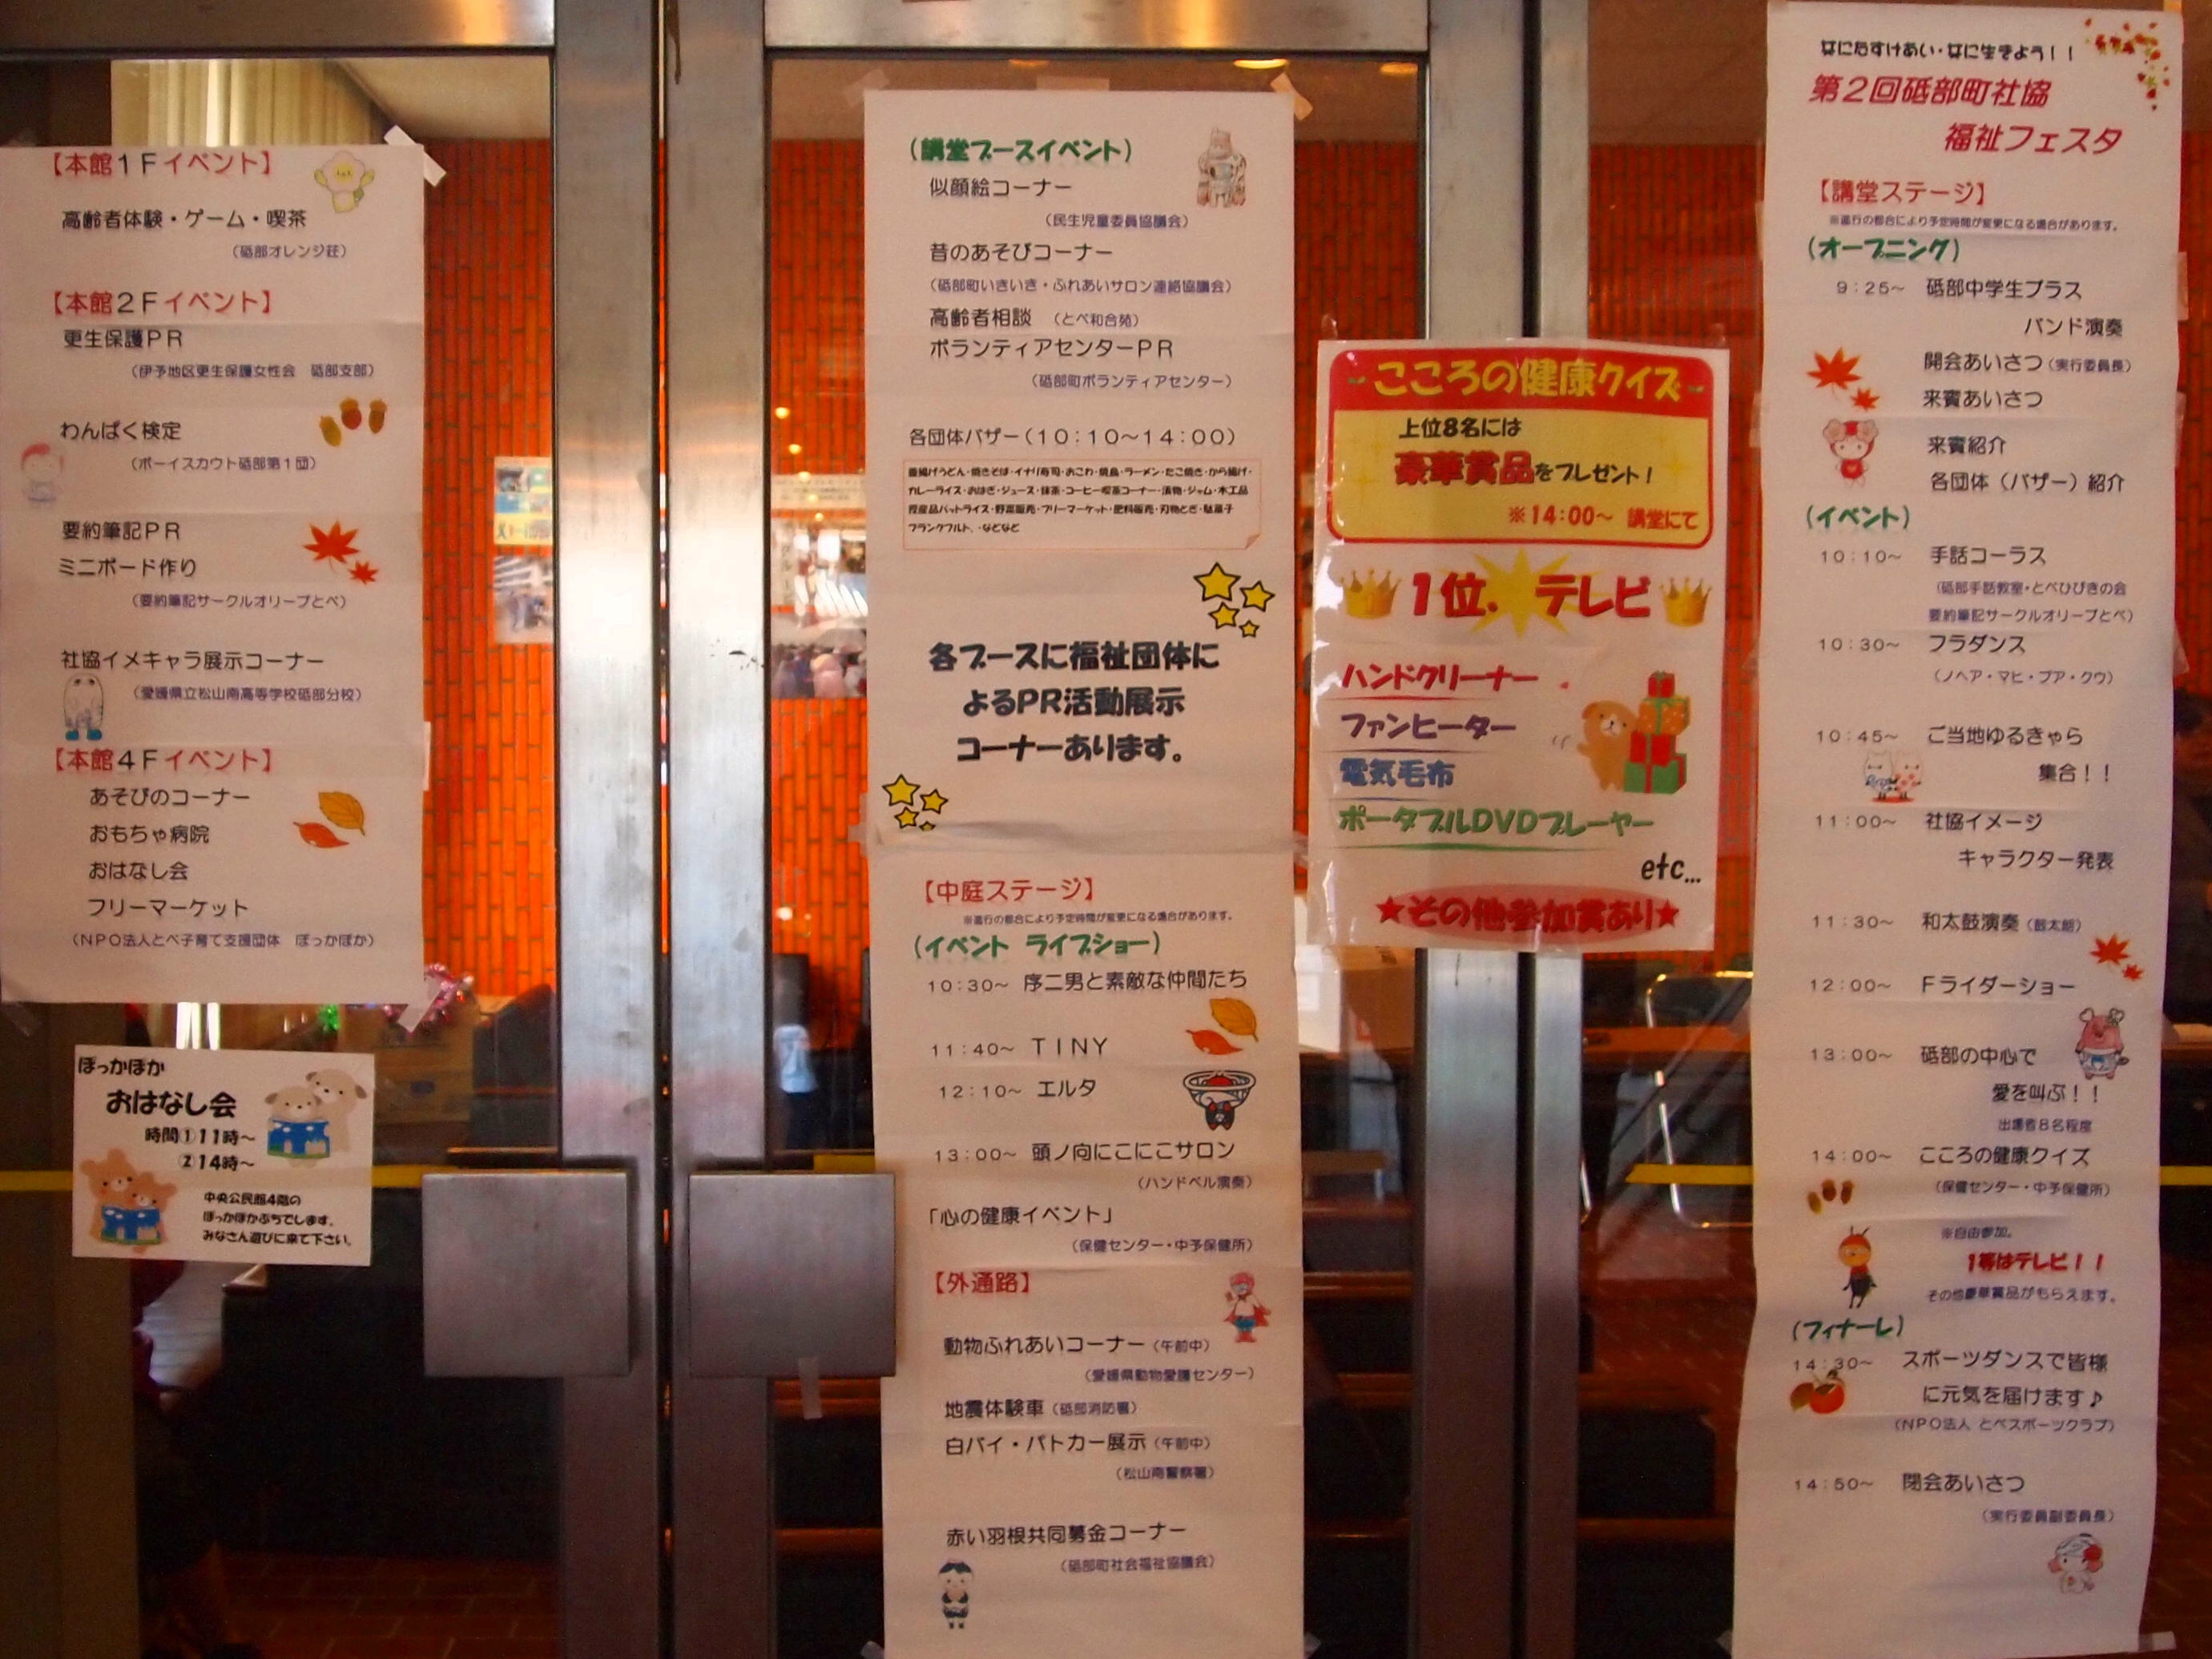 【本館1Fイベント】
高齢者体験・ゲーム・喫茶
(砥部オレンジ荘)
【本館2Fイベント】
更生保護PR
(伊予地区更生保護女性会 砥部支部)
わんぱく検定
(ボーイスカウト砥部第1団)
要約筆記PR
ミニボード作り
(要約筆記サークルオリーブとべ)
社協イメキャラ展示コーナー
(愛媛県立松山南高等学校砥部分校)
【本館4Fイベント】
あそびのコーナー
おもちゃ病院
おはなし会
フリーマーケット
(NPO法人とべ子育て支援団体 ぽっかぽか)
ぽっかぽか
おはなし会
時間①11時~
②14時~
中央公民館4階の
ぽっかぽかぷちでします。
みなさん遊びに来て下さい。
(講堂ブースイベント)
似顔絵コーナー
(民生児童委員協議会)
昔のあそびコーナー
(砥部町いきいき・ふれあいサロン連絡協議会)
高齢者相談 (とべ和合苑)
ボランティアセンターPR
(砥部町ボランティアセンター)
各団体バザー(10:10~14:00)
釜揚げうどん・焼きそば・イナリ寿司・おこわ・焼鳥・ラーメン・たこ焼き・から揚げ・
カレーライス・おはぎ・ジュース・抹茶・コーヒー喫茶コーナー・漬物・ジャム・木工品
授産品バットライス・野菜販売・フリーマーケット・肥料販売・刃物とぎ・駄菓子
フランクフルト、・などなど
各ブースに福祉団体に
よるPR活動展示
コーナーあります。
【中庭ステージ】
※進行の都合により予定時間が変更になる場合があります。
(イベント ライブショー)
10:30~ 序二男と素敵な仲間たち
11:40~ TINY
12:10~ エルタ
13:00~ 頭ノ向にこにこサロン
(ハンドベル演奏)
「心の健康イベント」
(保健センター・中予保健所)
【外通路】
動物ふれあいコーナー(午前中)
(愛媛県動物愛護センター)
地震体験車(砥部消防署)
白バイ・パトカー展示(午前中)
(松山南警察署)
赤い羽根共同募金コーナー
(砥部町社会福祉協議会)
-こころの健康クイズ-
上位8名には
豪華賞品をプレゼント!
※14:00~ 講堂にて
1位. テレビ
ハンドクリーナー
ファンヒーター
電気毛布
ポータブルDVDプレーヤー
etc...
★その他参加賞あり★
なにたすけあい・なに生きよう!!
第2回砥部町社協
福祉フェスタ
【講堂ステージ】
※進行の都合により予定時間が変更になる場合があります。
(オープニング)
9:25~ 砥部中学生ブラス
バンド演奏
開会あいさつ(実行委員長)
来賓あいさつ
来賓紹介
各団体(バザー)紹介
(イベント)
10:10~ 手話コーラス
(砥部手話教室・とべひびきの会
要約筆記サークルオリーブとべ)
10:30~ フラダンス
(ノヘア・マヒ・プア・クウ)
10:45~ ご当地ゆるきゃら
集合!!
11:00~ 社協イメージ
キャラクター発表
11:30~ 和太鼓演奏(鼓太朗)
12:00~ Fライダーショー
13:00~ 砥部の中心で
愛を叫ぶ!!
出場者8名程度
14:00~ こころの健康クイズ
(保健センター・中予保健所)
※自由参加。
1等はテレビ!!
その他豪華賞品がもらえます。
(フィナーレ)
14:30~ スポーツダンスで皆様
に元気を届けます♪
(NPO法人 とべスポーツクラブ)
14:50~ 閉会あいさつ
(実行委員副委員長)